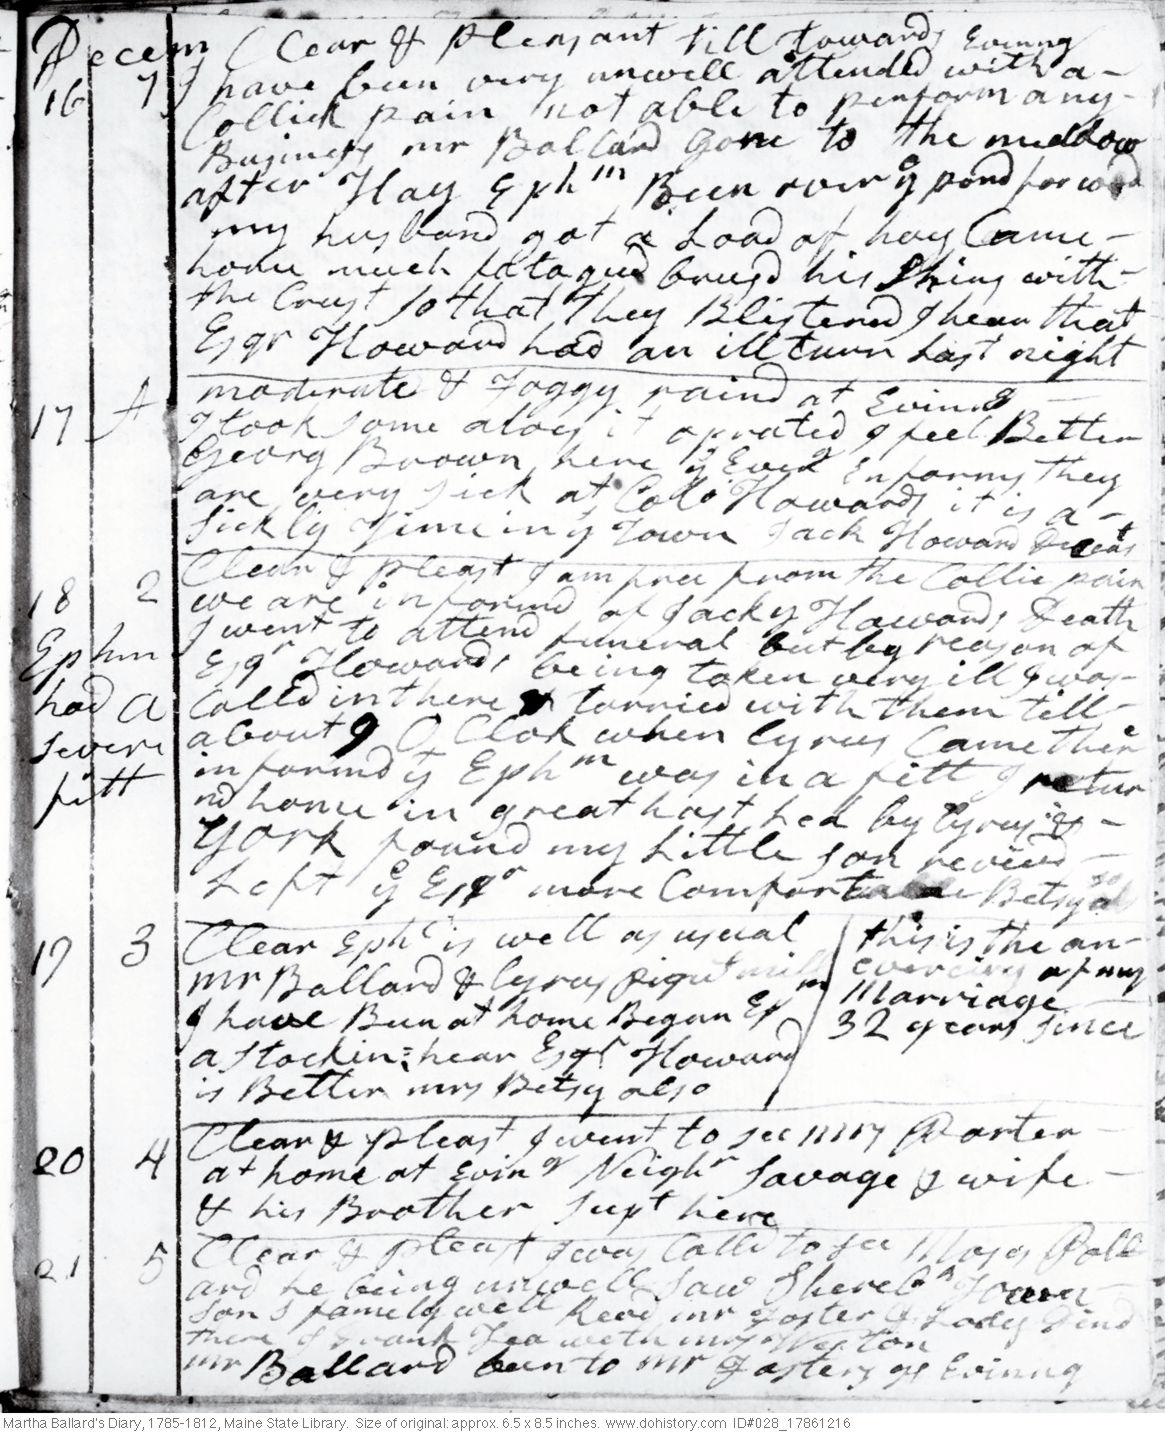 Decem
16 7 Clear & pleasant till towards Evinng
I have been very unwell attended with a
Collick pain not able to perform any
Business mr Ballard gone to the meddow
after Hay Ephm Been over ye pond for wood
my husband got a Load of hay Came
home much fatagud brusd his Shins with
the Crust so that they Blistered I hear that
Esqr Howard had an ill turn Last night
17 A moderate & Foggy raind at Evinng
I took some aloes it oprated I feel Better
Georg Brown here ye Eveg Enforms they
are very sick at Colo Howards it is a
sickly time in ye Town Jack Howard
18 2 Clear & pleast I am free from the Collic pain
we are informd of Jacky Howards Death
I went to attend funeral but by reason of
Esqr Howards being taken very ill I was
Calld in there & tarried with them till
about 9 O Clok when Cyrus Came there
informd yt Ephm was in a fitt I retur
nd home in great hast Led by Cyrus &
York found my Little son revivd
Left ye Esqr more Comfortable Betsy
Ephm
had a
severe
fitt
19 3 Clear Ephm is well as usual
mr Ballard & Cyrus
I have Been at home Began Ep m
a stockin; hear Esqr Howard
is Better mrs Betsy also
this is the an-
everciry of my
Marriage
32 years since
20 4 Clear & pleast I went to see mrs Porter
at home at Evingg Neighr Savage & wife
& his Brother supt here
21 5 Clear & pleast I was Calld to see Moses Poll
ard he being unwell saw Sherebh Town
sons famely well Read mr Foster & Lady Dind
there I Drank Tea with mrs Weston
mr Ballard been to mr Fosters ys Evinng
Martha Ballard's Diary, 1785-1812, Maine State Library. Size of original: approx. 6.5 x 8.5 inches. www.dohistory.com ID#028_17861216